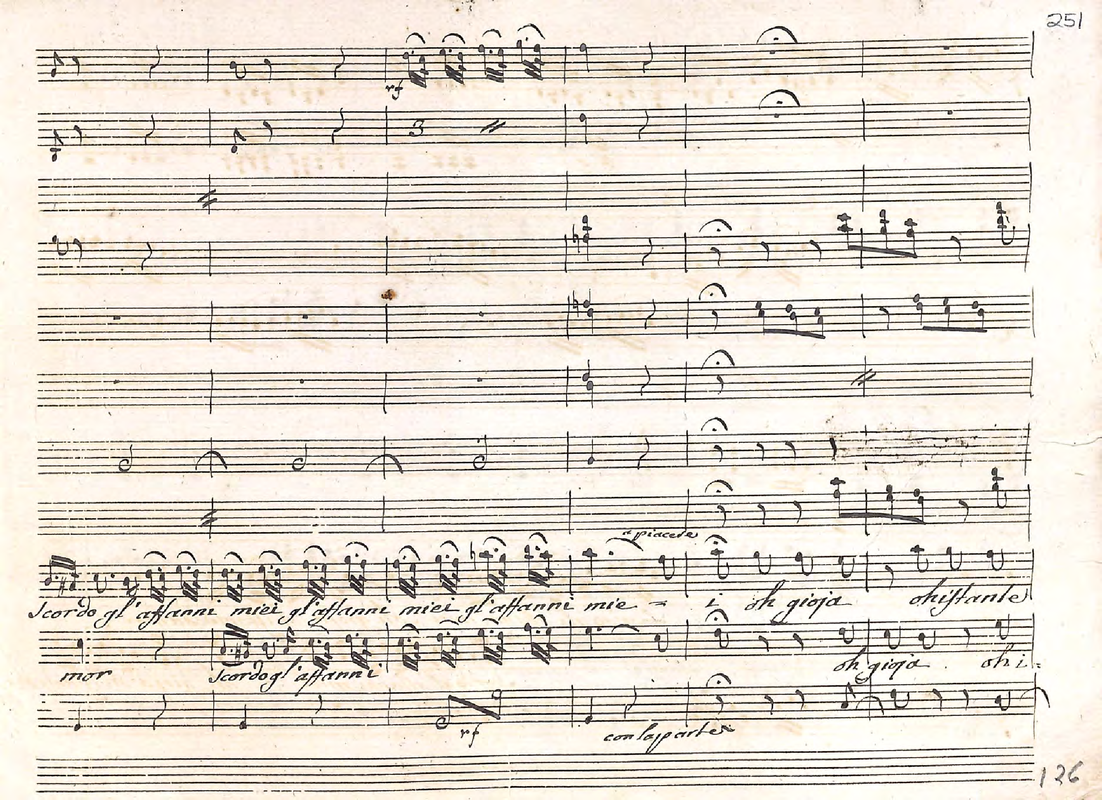 251
rf
3
a piacere
Scordo gl'affanni miei gl'affanni miei gl'affanni mie = i oh gioja oh istante
mor Scordo gl'affanni oh gioja oh i=
rf
con la parte
126